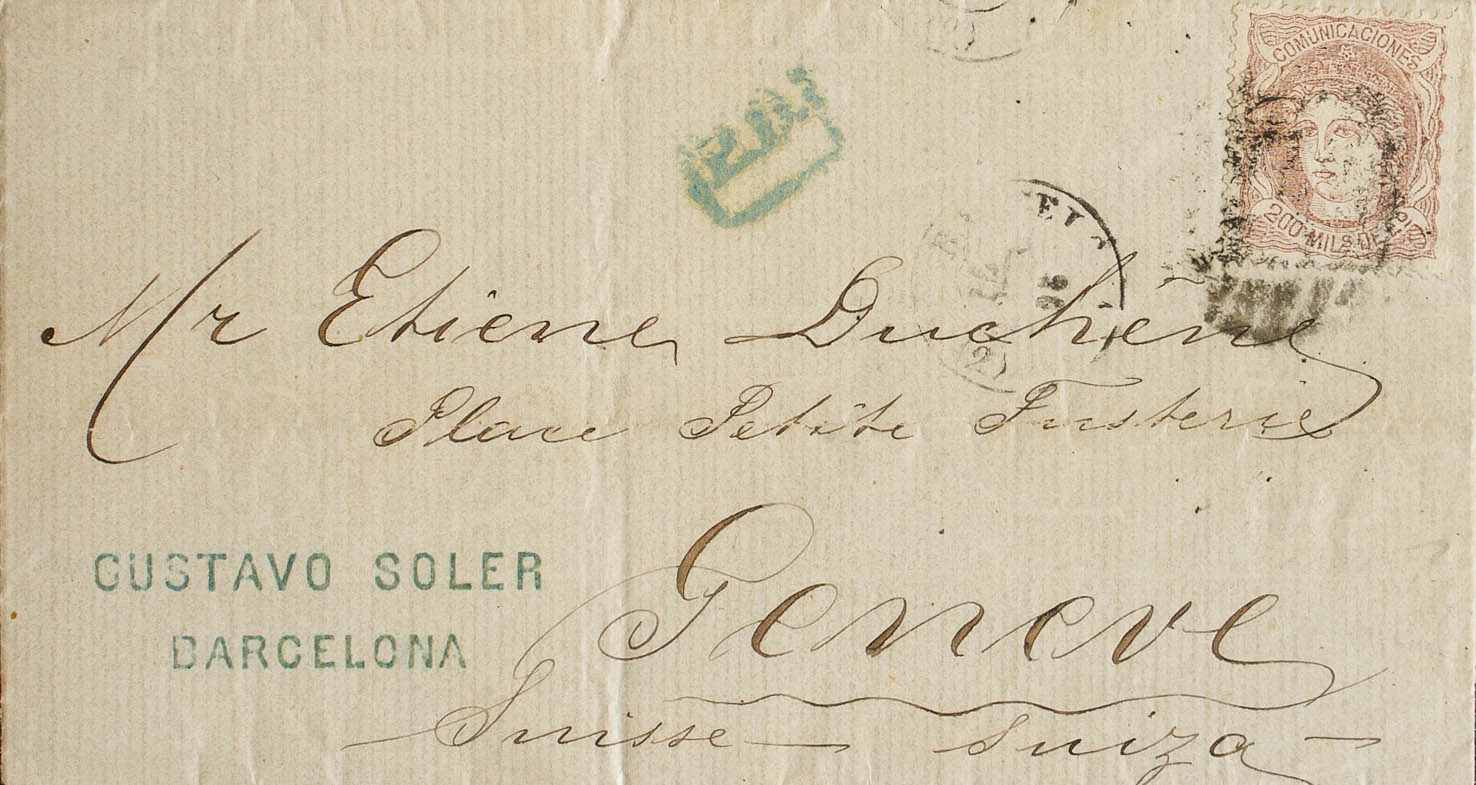 COMUNICACIONES
200 MILS DE
Mr Etiene Duchêne
Place Petite Fusterie
Genève
Suisse — Suiza —
GUSTAVO SOLER
BARCELONA